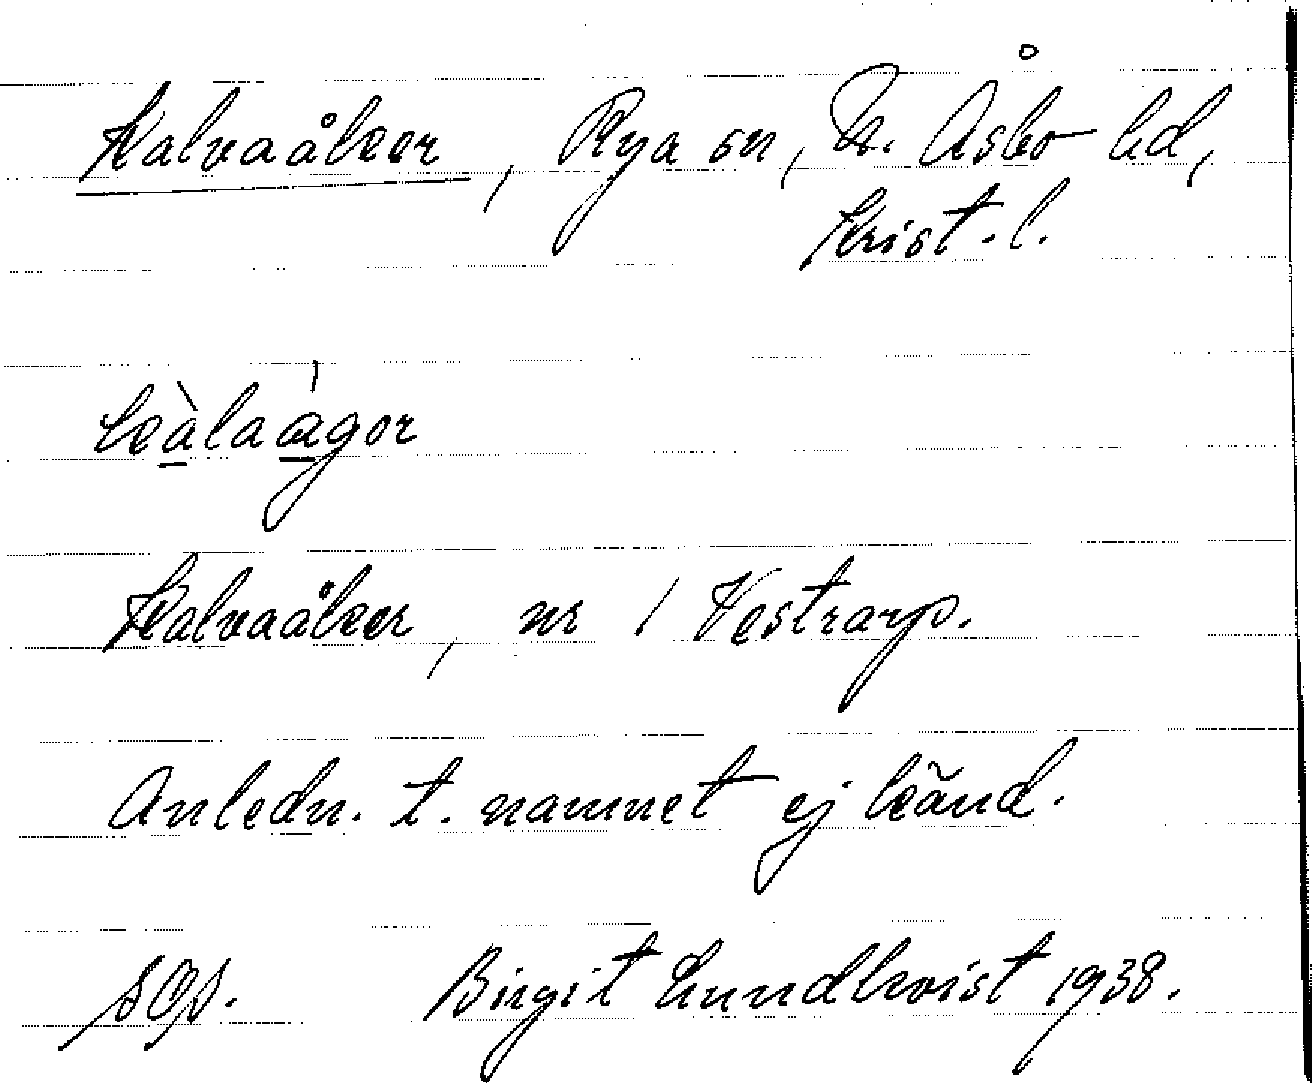 Kalvaåker, Rya sn, N. Åsbo hd,
Krist. l.
Kalvaåker, nr 1 Vestrarp.
Anledn. t. namnet ej känd.
sOs. Birgit Lundkvist 1938.